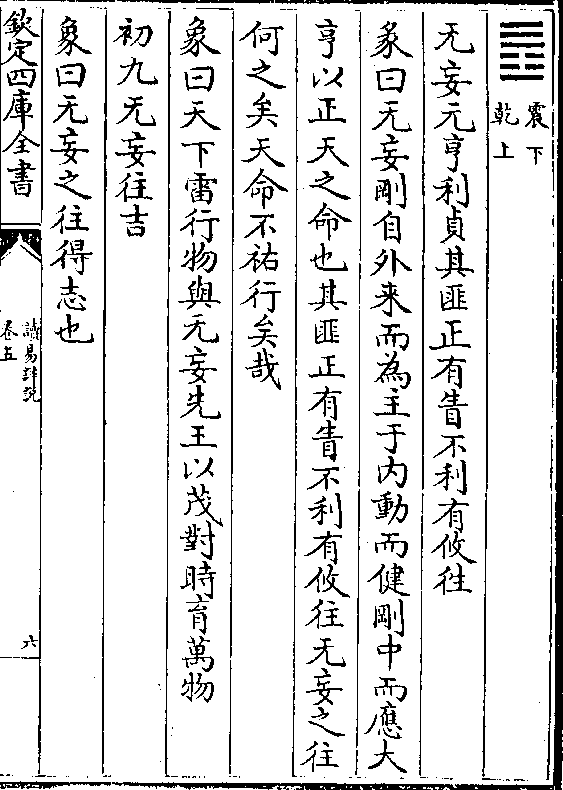 震下
乾上
无妄元亨利貞其匪正有眚不利有攸往
彖曰无妄剛自外来而為主于内動而健剛中而應大
亨以正天之命也其匪正有眚不利有攸往无妄之往
何之矣天命不祐行矣哉
象曰天下雷行物與无妄先王以茂對時育萬物
初九无妄往吉
象曰无妄之往得志也
欽定四庫全書
讀易詳說
卷五
六